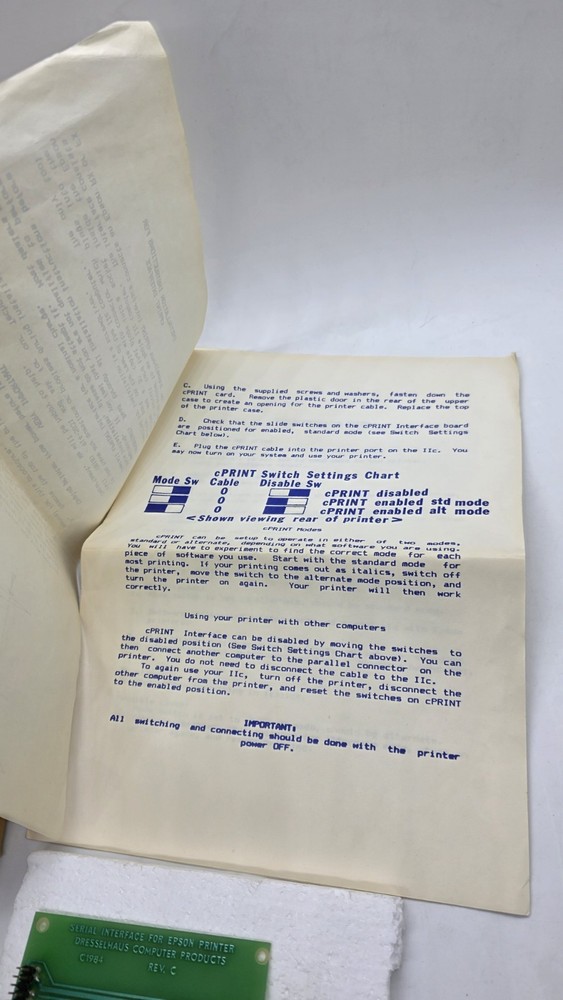 C. Using the supplied screws and washers, fasten down the
cPRINT card. Remove the plastic door in the rear of the upper
case to create an opening for the printer cable. Replace the top
of the printer case.
D. Check that the slide switches on the cPRINT Interface board
are positioned for enabled, standard mode (see Switch Settings
Chart below).
E. Plug the cPRINT cable into the printer port on the IIc. You
may now turn on your system and use your printer.
cPRINT Switch Settings Chart
Mode Sw Cable Disable Sw
0 cPRINT disabled
0 cPRINT enabled std mode
0 cPRINT enabled alt mode
<Shown viewing rear of printer>
cPRINT Modes
cPRINT can be setup to operate in either of two modes,
standard or alternate, depending on what software you are using.
You will have to experiment to find the correct mode for each
piece of software you use. Start with the standard mode for
most printing. If your printing comes out as italics, switch off
the printer, move the switch to the alternate mode position, and
turn the printer on again. Your printer will then work
correctly.
Using your printer with other computers
cPRINT Interface can be disabled by moving the switches to
the disabled position (See Switch Settings Chart above). You can
then connect another computer to the parallel connector on the
printer. You do not need to disconnect the cable to the IIc.
To again use your IIc, turn off the printer, disconnect the
other computer from the printer, and reset the switches on cPRINT
to the enabled position.
IMPORTANT:
All switching and connecting should be done with the printer
power OFF.
SERIAL INTERFACE FOR EPSON PRINTER
DRESSELHAUS COMPUTER PRODUCTS
C1984 REV. C